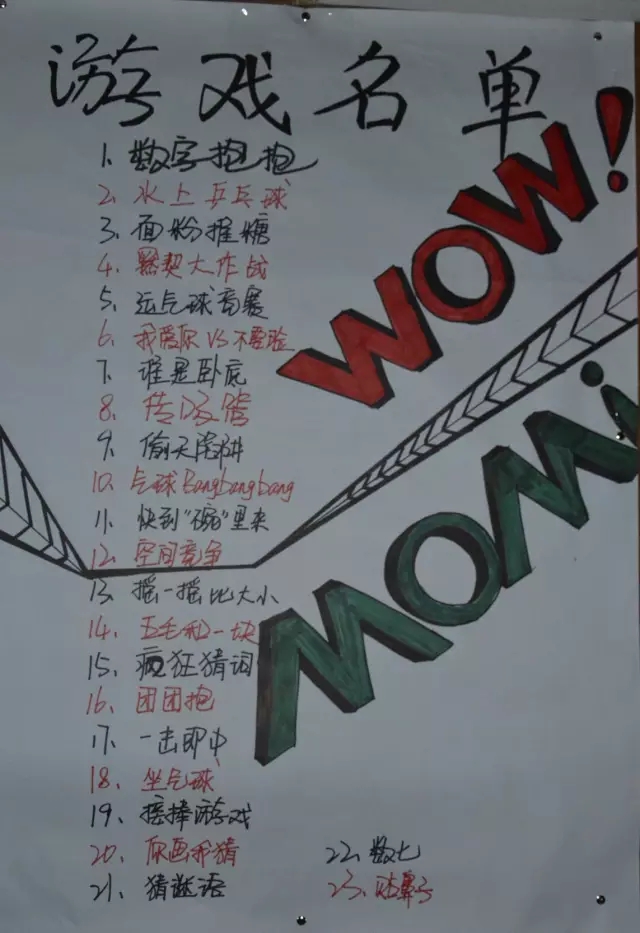 游戏名单
1、数字抱抱
2、水上乒乓球
3、面粉推糖
4、默契大作战
5、运气球竞赛
6、我爱你 VS 不要脸
7、谁是卧底
8、
9、偷天陷阱
10、气球Bangbangbang
11、快到"碗"里来
12、空间竞争
13、摇一摇比大小
14、五毛和一块
15、疯狂猜词
16、团团抱
17、一击即中
18、坐气球
19、接捧游戏
20、你画我猜
21、猜谜语
22、数七
23、贴鼻子
WOW!
MOMi